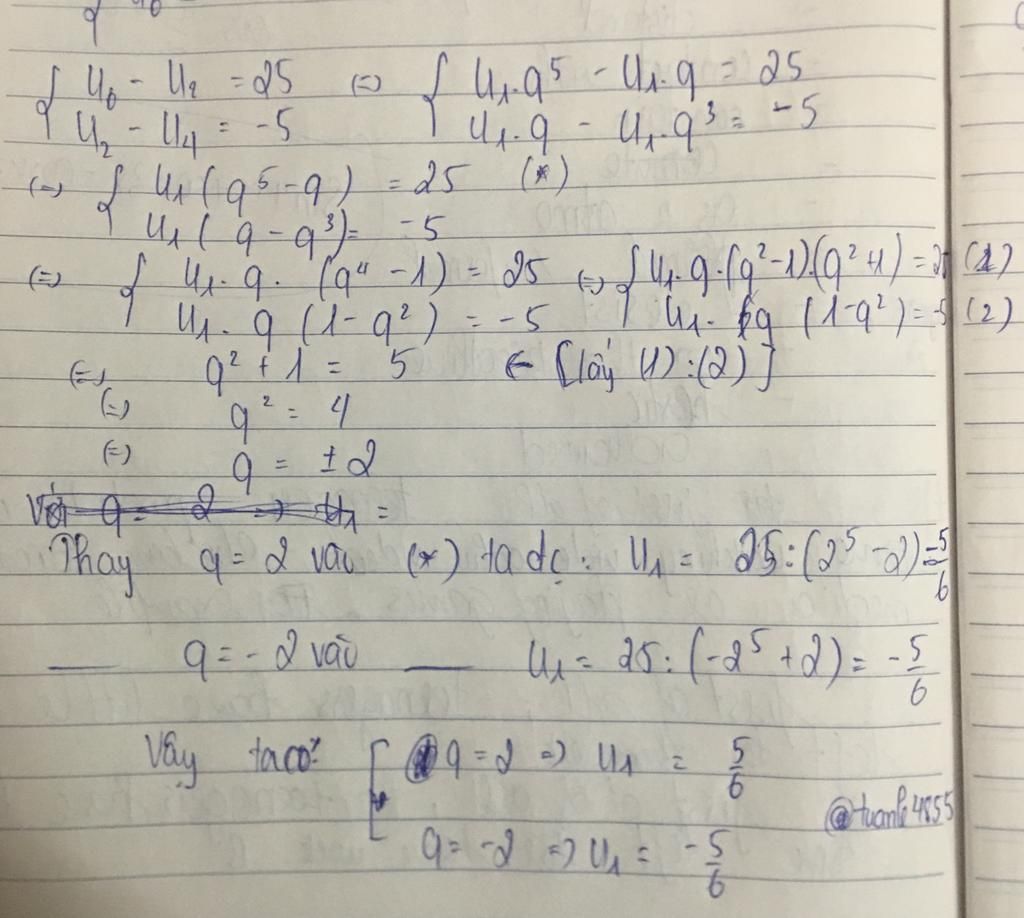 { U₆ - U₂ = 25 (=) { U₁.q⁵ - U₁.q = 25
U₂ - U₄ = -5 U₁.q - U₁.q³ = -5
(=) { U₁ (q⁵ - q) = 25 (*)
U₁ (q - q³) = -5
(=) { U₁.q.(q⁴ - 1) = 25 (=) { U₁.q.(q²-1).(q²+1) = 25 (1)
U₁.q (1 - q²) = -5 U₁.q (1-q²) = -5 (2)
(=) q² + 1 = 5 ← [lấy (1) : (2)]
(=) q² = 4
(=) q = ±2
Với q = 2 => U₁ =
Thay q = 2 vào (*) ta dc: U₁ = 25 : (2⁵ - 2) = 5/6
— q = -2 vào — U₁ = 25 : (-2⁵ + 2) = -5/6
Vậy ta có: [ q = 2 => U₁ = 5/6
@tuanle4855
q = -2 => U₁ = -5/6